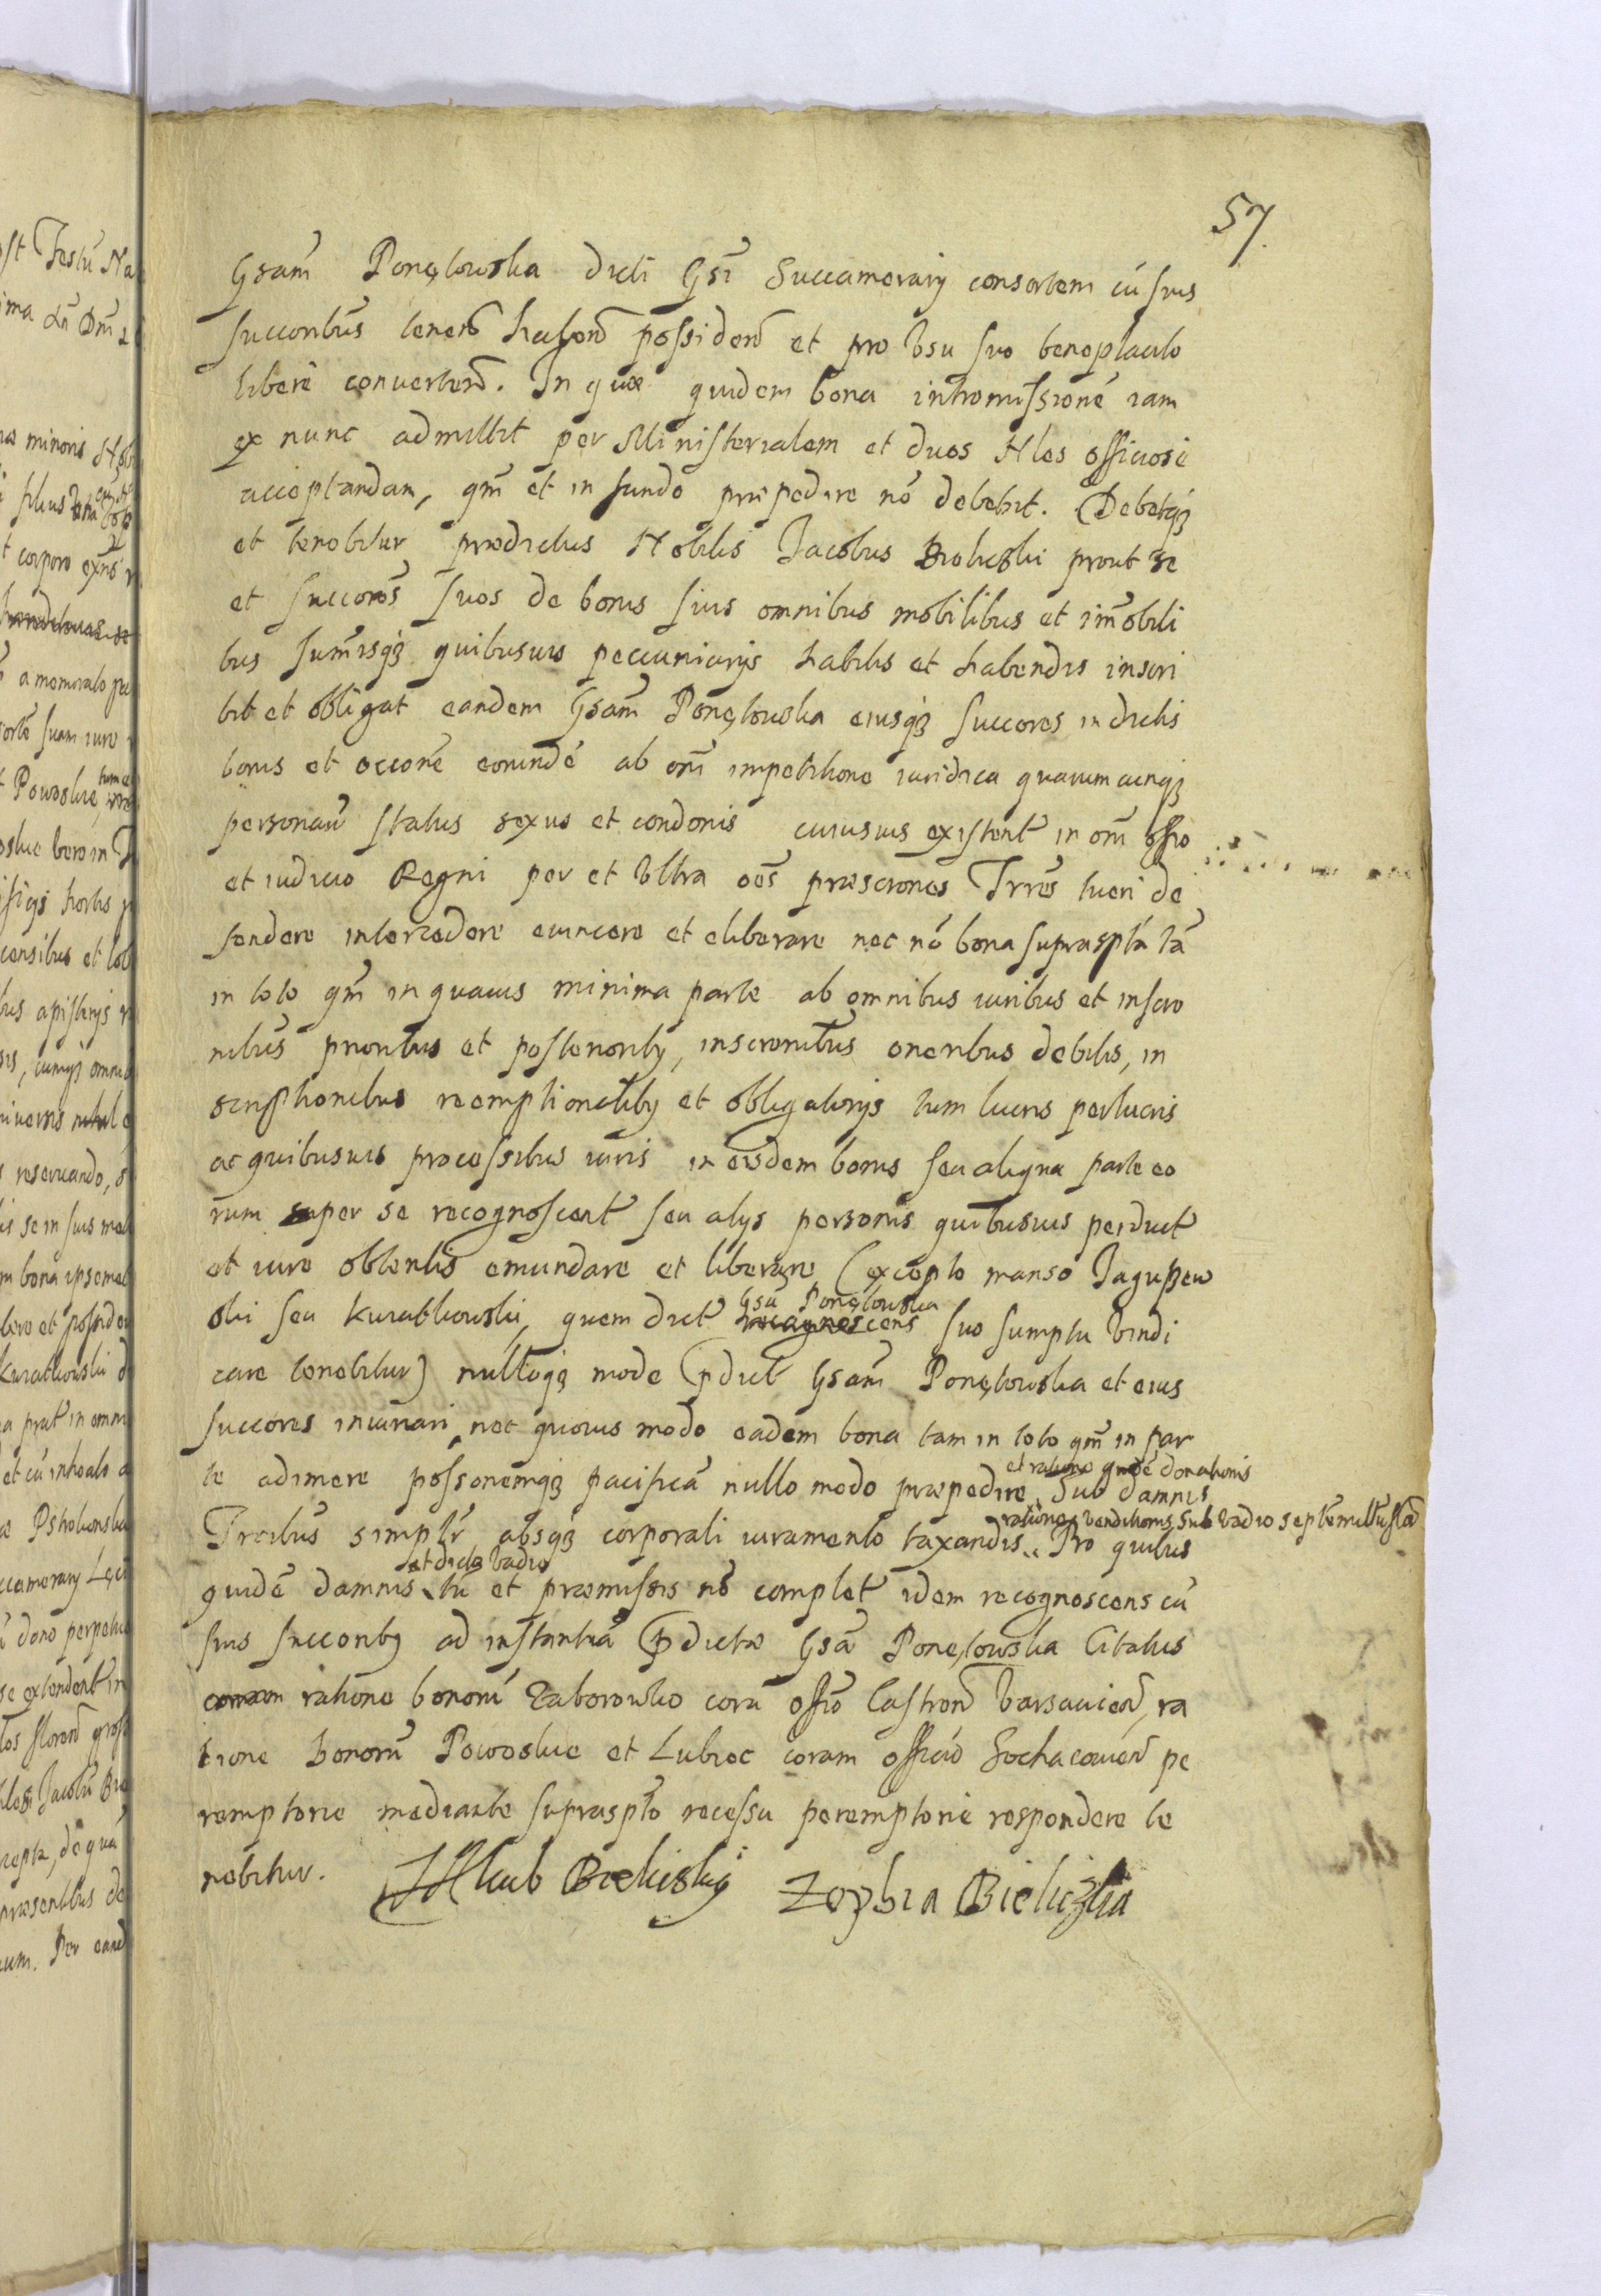 57.
Gsam̃ Ponętowska dicti Gsi Succamerarij consortem cũ suis
succoribus tenen̄ haben̄ possiden̄ et pro vsu suo beneplacito
libere conuerten̄. In quæ quidem bona intromissionẽ iam
ex nunc admittit per Ministerialem et duos Nles officiose
acceptandam, qm̃ et in fundo præpedire nõ debebit. Debetqꝫ
et tenebitur prædictus Nobilis Jacobus Bieliczki prout se
et succores suos de bonis suis omnibus mobilibus et im̃obili
bus sum̃isqꝫ quibusuis peccuniarijs habitis et habendis inscri
bit et obligat eandem Gsam̃ Ponętowska eiusqꝫ succores in dictis
bonis et occõne eorundẽ ab om̃i impetitione iuridica quarumcunqꝫ
personarũ status sexus et condonis cuiusuis existent̃ in om̃i offio
et iudicio Regni per et vltra oẽs præscrones Trres tueri de
fendere intercedere euincere et eliberare nec nõ bona suprasptã tã
in toto qm̃ in quauis minima parte ab omnibus iuribus et inscro
nibus prioribus et posteriorib9, inscronibus oneribus debitis, in
scriptionibus reemptionalib9 et obligatorijs tum lucris perlucris
ac quibusuis processibus iuris in eisdem bonis seu aliqua parte eo
rum super se recognoscent̃ seu alys personis quibusuis perduct̃
et iure obtentis emundare et liberare, (excepto manso Jagupew
ski seu Kuratkowski, quem dict̃ recagnoscens Gsã Ponętowska suo sumptu vindi
care tenebitur) nulloqꝫ modo pdict̃ Gsam̃ Ponętowska et eius
succores iniuriari, nec quouis modo eadem bona tam in toto qm̃ in par
te adimere possonemqꝫ pacificã nullo modo præpedire et ratione donationis Sub damnis
Trribus simplr̃ absqꝫ corporali iuramento taxandis ratione venditionis sub vadio septẽ millium. Pro quibus
quidẽ damnis et dicto vadio tũ et præmissis nõ complet̃ idem recognoscens cũ
suis succorib9 ad instantiã pdictæ Gsã Ponętowska Citatus
ratione bonorũ Zaborowko corã offio Castren̄ Varsauien̄, ra
tione bonorũ Powoskie et Lubiec coram officio Sochacouien̄ pe
remptorie mediante supraspto recessu peremptorie respondere te
nebitur. JAkub Bieliskij Zophia Bieliczka